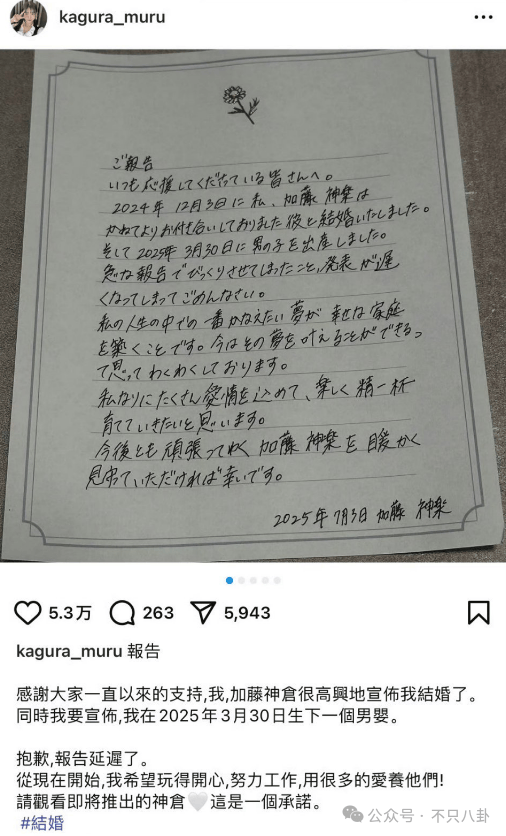 kagura_muru
ご報告
いつも応援してくださっている皆さんへ。
2024年 12月3日に私、加藤 神楽は
かねてよりお付き合いしておりました彼と結婚いたしました。
そして2025年 3月30日に男の子を出産しました。
急な報告でびっくりさせてしまったこと、発表が遅
くなってしまってごめんなさい。
私の人生の中での一番かなえたい夢が 幸せな家庭
を築くことです。今はその夢を叶えることができるっ
て思ってわくわくしております。
私なりにたくさん愛情を込めて、楽しく 精一杯
育てていきたいと思います。
今後とも頑張ってゆく 加藤 神楽を 暖かく
見守っていただければ幸いです。
2025年 7月3日 加藤 神楽
5.3万 263 5,943
kagura_muru 報告
感謝大家一直以來的支持,我,加藤神倉很高興地宣佈我結婚了。
同時我要宣佈,我在2025年3月30日生下一個男嬰。
抱歉,報告延遲了。
從現在開始,我希望玩得開心,努力工作,用很多的愛養他們!
請觀看即將推出的神倉🤍這是一個承諾。
#結婚
公众号 · 不只八卦